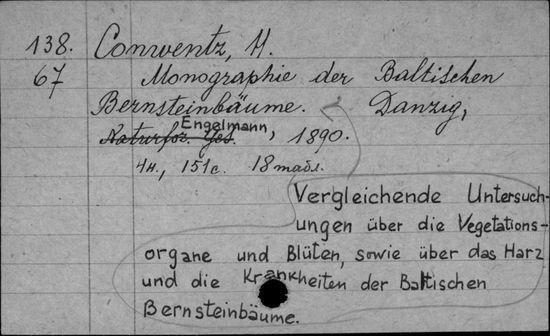 138. Conwentz, H.
67 Monographie der Baltischen
Bernsteinbäume. Danzig,
Engelmann,
Naturfor. Ges. 1890.
4н., 151с. 18 табл.
Vergleichende Untersuch-
ungen über die Vegetations-
organe und Blüten, sowie über das Harz
und die Krankheiten der Baltischen
Bernsteinbäume.